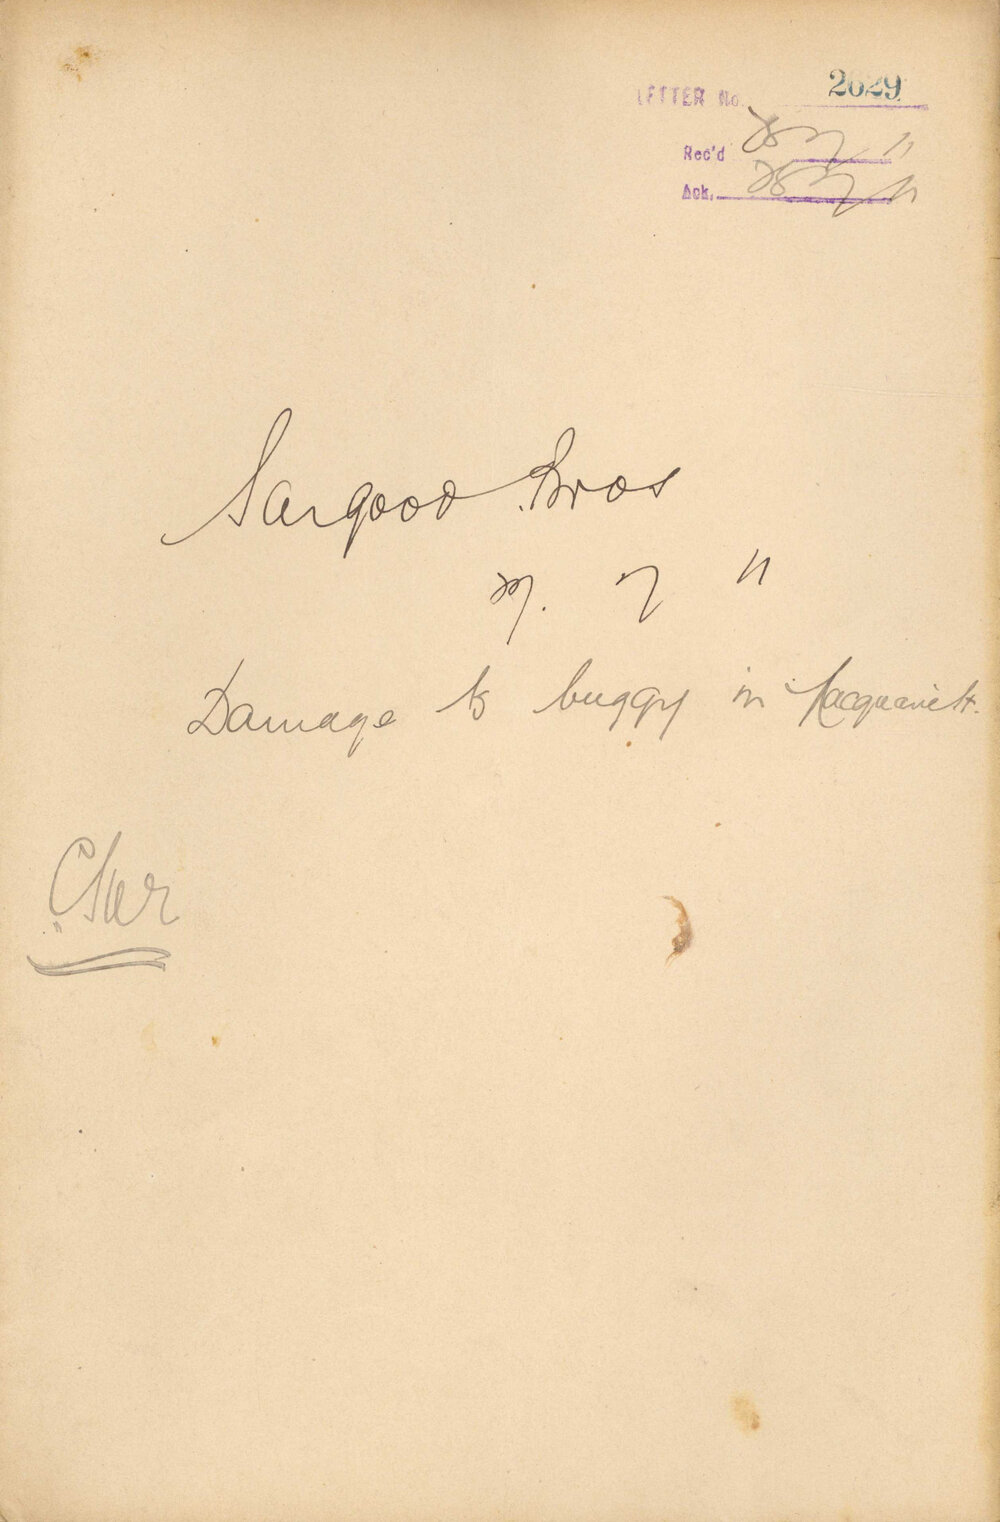 LETTER No. 2629
Rec'd 28 7 11
Ack. 28 7 11
Sargood Bros
27. 7 11
Damage to buggy in Macquarie St.